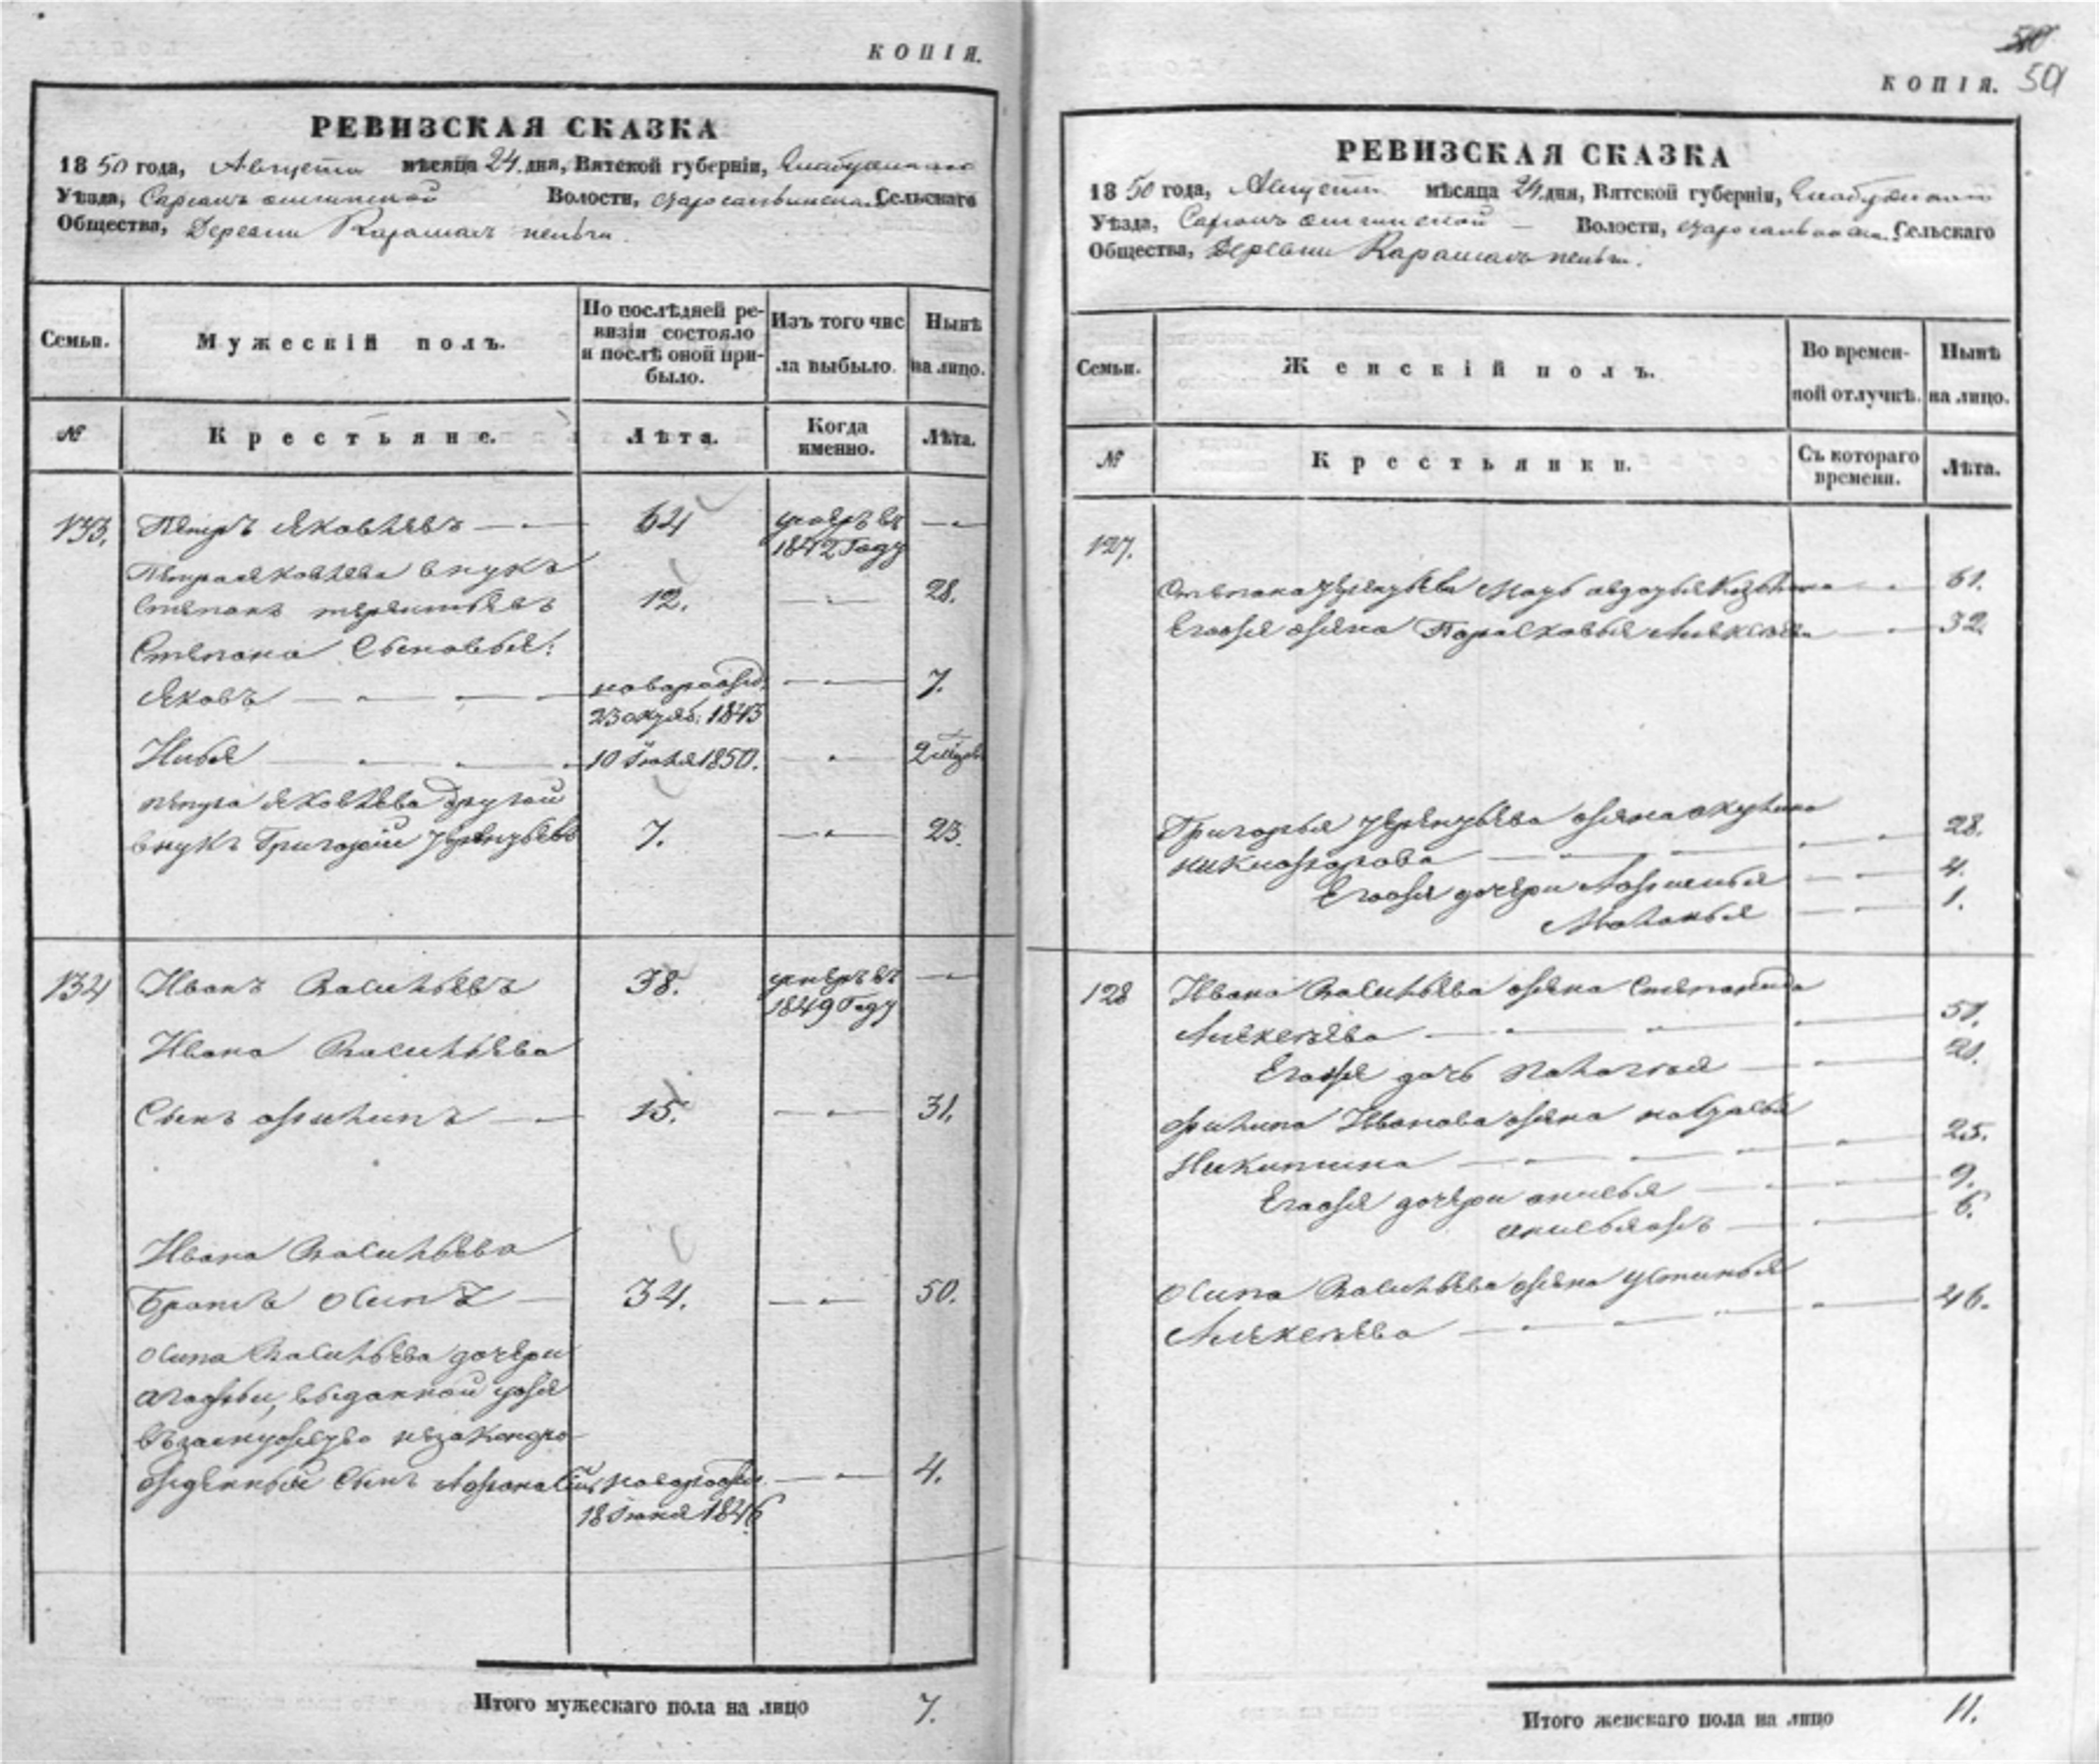 КОПІЯ.
РЕВИЗСКАЯ СКАЗКА
1850 года, Августа мѣсяца 24 дня, Вятской губерніи, Елабужскаго
Уѣзда, Волости, Сельскаго
Общества, Деревни
Семьи. Мужескій полъ. По послѣдней ревизіи состояло и послѣ оной прибыло. Изъ того числа выбыло. Нынѣ на лицо.
№ Крестьяне. Лѣта. Когда именно. Лѣта.
133. Петръ Яковлевъ 64 умеръ въ
1842 Году
Петра Яковлева внукъ
Степанъ Терентьевъ 12. 28.
Степана Сыновья:
Яковъ новорожд. 7.
23 октяб: 1843
Илья 10 Іюня 1850.
Петра Яковлева другой
внукъ Григорій Терентьевъ 7. 23.
134 Иванъ Васильевъ 38. умеръ въ
1849 Году
Ивана Васильева
Сынъ Филипъ 15. 31.
Ивана Васильева
Братъ Осипъ 34. 50.
Осипа Васильева дочери
Агафьи, выданной уже
въ замужество незаконоро
жденный Сынъ Афонасій новорожд. 4.
18 Іюня 1846
Итого мужескаго пола на лицо 7.
КОПІЯ. 50
РЕВИЗСКАЯ СКАЗКА
1850 года, Августа мѣсяца 24 дня, Вятской губерніи, Елабужскаго
Уѣзда, Волости, Сельскаго
Общества, Деревни
Семьи. Женскій полъ. Во временной отлучкѣ. Нынѣ на лицо.
№ Крестьянки. Съ котораго времени. Лѣта.
127.
Степана Терентьева Мать Авдотья 61.
Егоже жена Парасковья Алексѣева 32.
Григорья Терентьева жена Акулина
Никифорова 28.
Егоже дочери Афимья 4.
Маланья 1.
128 Ивана Васильева жена Степанида
Алексѣева 51.
Егоже дочь Палагея 21.
Филипа Иванова жена Наталья
Никитина 25.
Егоже дочери Анисья 9.
6.
Осипа Васильева жена Устинья
Алексѣева 46.
Итого женскаго пола на лицо 11.